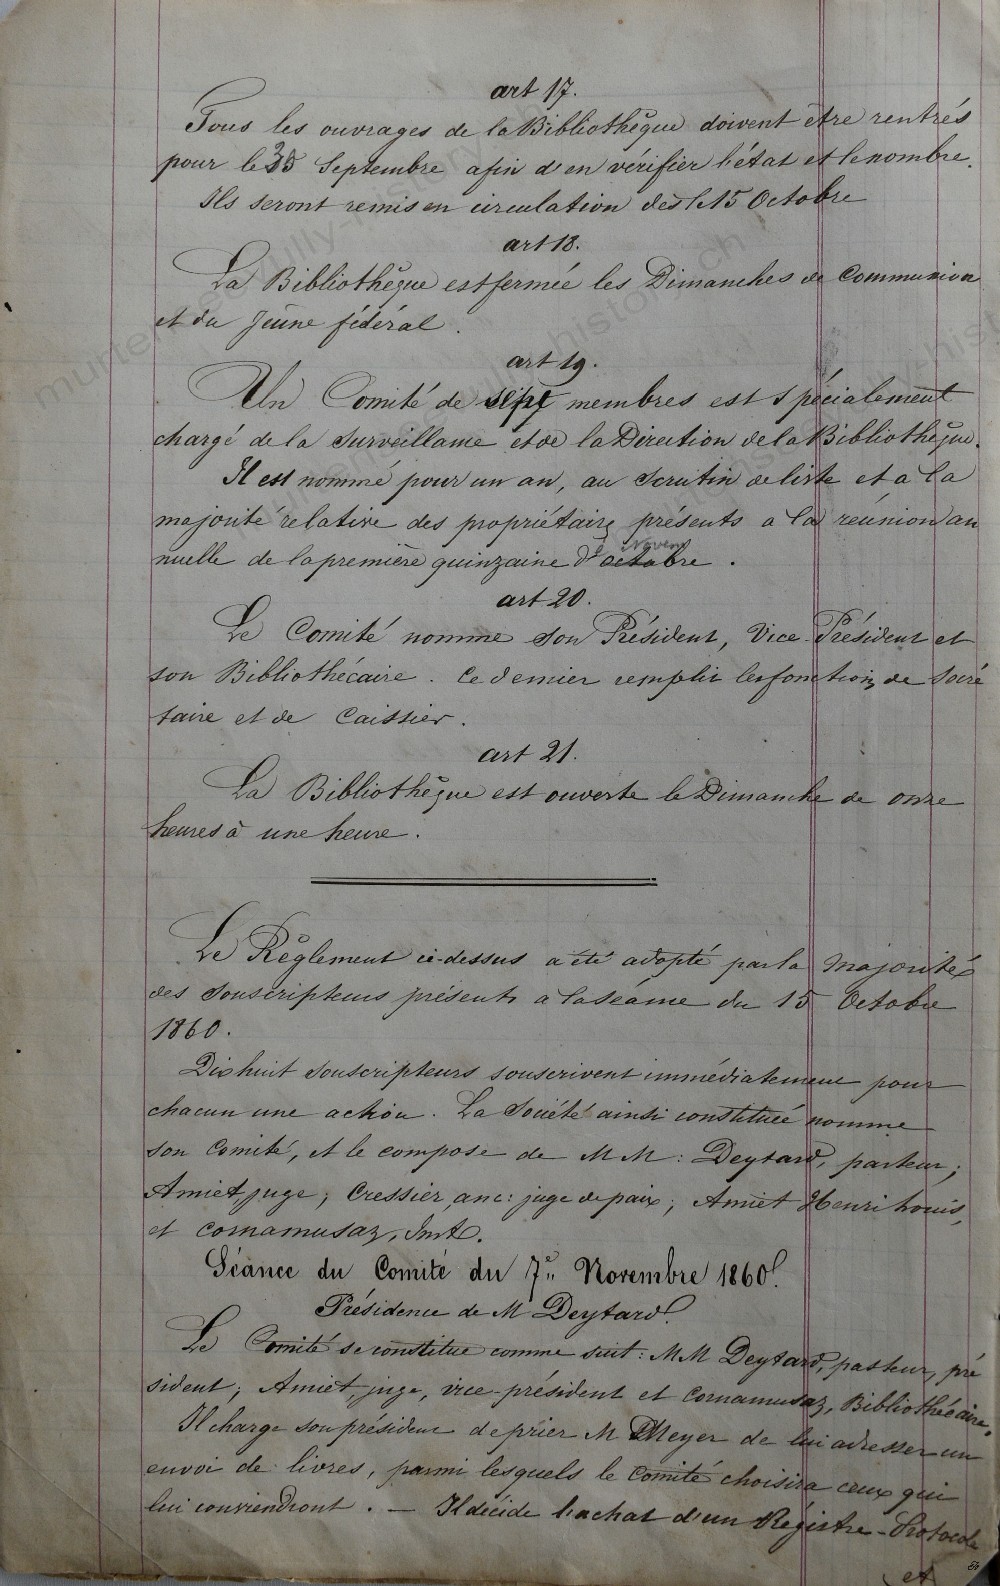 art 17.
Tous les ouvrages de la Bibliothèque doivent être rentrés
pour le Septembre afin d'en vérifier l'état et le nombre.
Ils seront remis en circulation dès le 15 Octobre
art 18.
La Bibliothèque est fermée les Dimanches de Communion
et du Jeûne fédéral.
art 19.
Un Comité de sept membres est spécialement
chargé de la surveillance et de la Direction de la Bibliothèque.
Il est nommé pour un an, au scrutin de liste et a la
majorité relative des propriétaires présents a la réunion an
nuelle de la première quinzaine d'octobre.
art 20.
Le Comité nomme son Président, Vice-Président et
son Bibliothécaire. Ce dernier remplit les fonctions de Secré
taire et de Caissier.
art 21.
La Bibliothèque est ouverte le Dimanche de onze
heures à une heure.
Le Règlement ci-dessus a été adopté par la majorité
des souscripteurs présents a la séance du 15 Octobre
1860.
Dix huit souscripteurs souscrivent immédiatement pour
chacun une action. La Société ainsi constituée nomme
son Comité, et le compose de MM: Deytard, pasteur;
Amiet, juge; Cressier, anc: juge de paix; Amiet Henri Louis,
et Cornamusaz, Inst.
Séance du Comité du 7e Novembre 1860.
Présidence de M Deytard.
Le Comité se constitue comme suit: MM Deytard, pasteur, pré
sident; Amiet, juge, vice-président et Cornamusaz, Bibliothécaire.
Il charge son président de prier M Meyer de lui adresser un
envoi de livres, parmi lesquels le Comité choisira ceux qui
lui conviendront. — Il décide l'achat d'un Régistre-Protocole
et